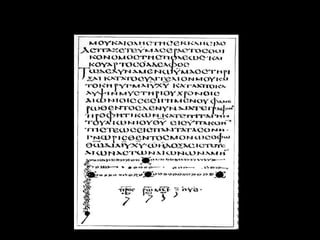 ΜΟΥΚΑΙΟΛΗϹΤΗϹΕΚΚΛΗϹΙΑϹ
ΑϹΠΑΖΕΤΑΙΥΜΑϹΕΡΑϹΤΟϹΟΟΙ
ΚΟΝΟΜΟϹΤΗϹΠΟΛΕΩϹΚΑΙ
ΚΟΥΑΡΤΟϹΟΑΔΕΛΦΟϹ
ΤΩΔΕΔΥΝΑΜΕΝΩΥΜΑϹϹΤΗΡΙ
ΞΑΙΚΑΤΑΤΟΕΥΑΓΓΕΛΙΟΝΜΟΥΚΑΙ
ΤΟΚΗΡΥΓΜΑΙΥΧΥΚΑΤΑΑΠΟΚΑ
ΛΥΨΙΝΜΥϹΤΗΡΙΟΥΧΡΟΝΟΙϹ
ΑΙΩΝΙΟΙϹϹΕϹΙΓΗΜΕΝΟΥΦΑΝΕ
ΡΩΘΕΝΤΟϹΔΕΝΥΝΔΙΑΤΕΓΡΑΦΩΝ
ΠΡΟΦΗΤΙΚΩΝΚΑΤΕΠΙΤΑΓΗΝ
ΤΟΥΑΙΩΝΙΟΥΘΥΕΙϹΥΠΑΚΟΗΝ
ΠΙϹΤΕΩϹΕΙϹΠΑΝΤΑΤΑΕΘΝΗ
ΓΝΩΡΙϹΘΕΝΤΟϹΜΟΝΩϹΟΦΩ
ΘΩΔΙΑΙΥΧΥΩΗΔΟΞΑΕΙϹΤΟΥϹ
ΑΙΩΝΑϹΤΩΝΑΙΩΝΩΝΑΜΗΝ